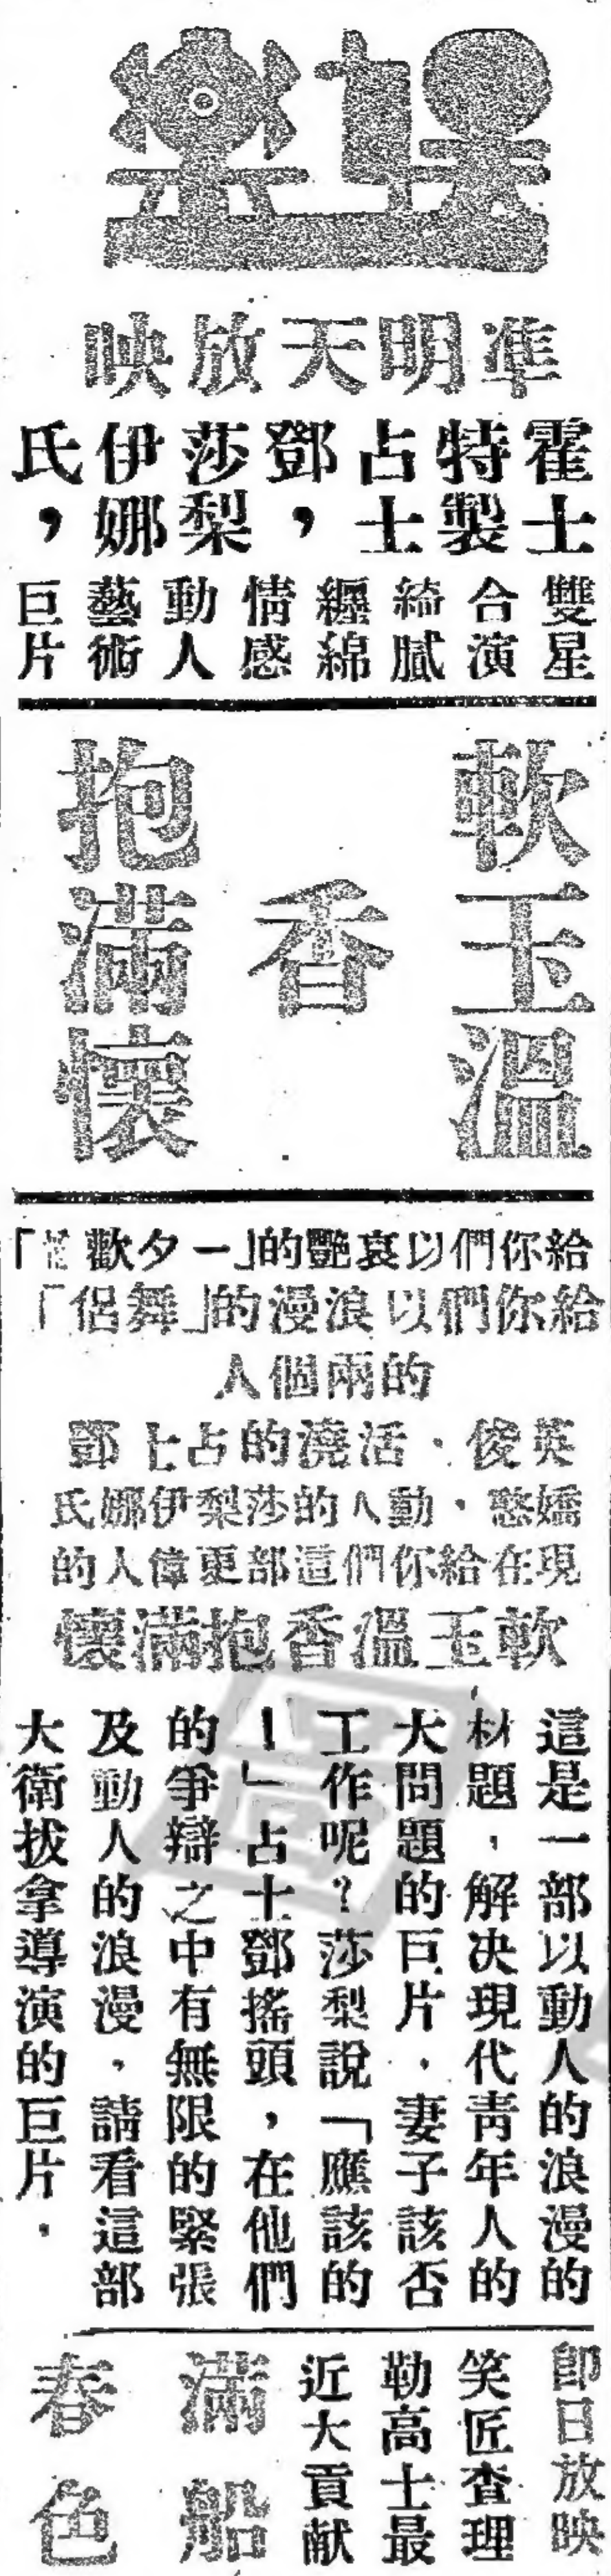 娛樂
準明天放映
霍士
特製
占士
鄧，
莎梨
伊娜
氏，
雙星
合演
綺膩
纏綿
情感
動人
藝術
巨片
軟玉溫
香
抱滿懷
給你們以哀艷的「一夕歡
給你們以浪漫的「舞侶」
的兩個人
英俊·活澆的占士鄧
嬌憨·動人的莎梨伊娜氏
現在給你們這部更偉人的
軟玉溫香抱滿懷
這是一部以動人的浪漫的
材題，解决現代青年人的
大問題的巨片·妻子該否
工作呢？莎梨說「應該的
！」占士鄧搖頭，在他們
的爭辯之中有無限的緊張
及動人的浪漫·請看這部
大衛拔拿導演的巨片·
即日放映
笑匠查理
勒高士最
近大貢献
滿船
春色